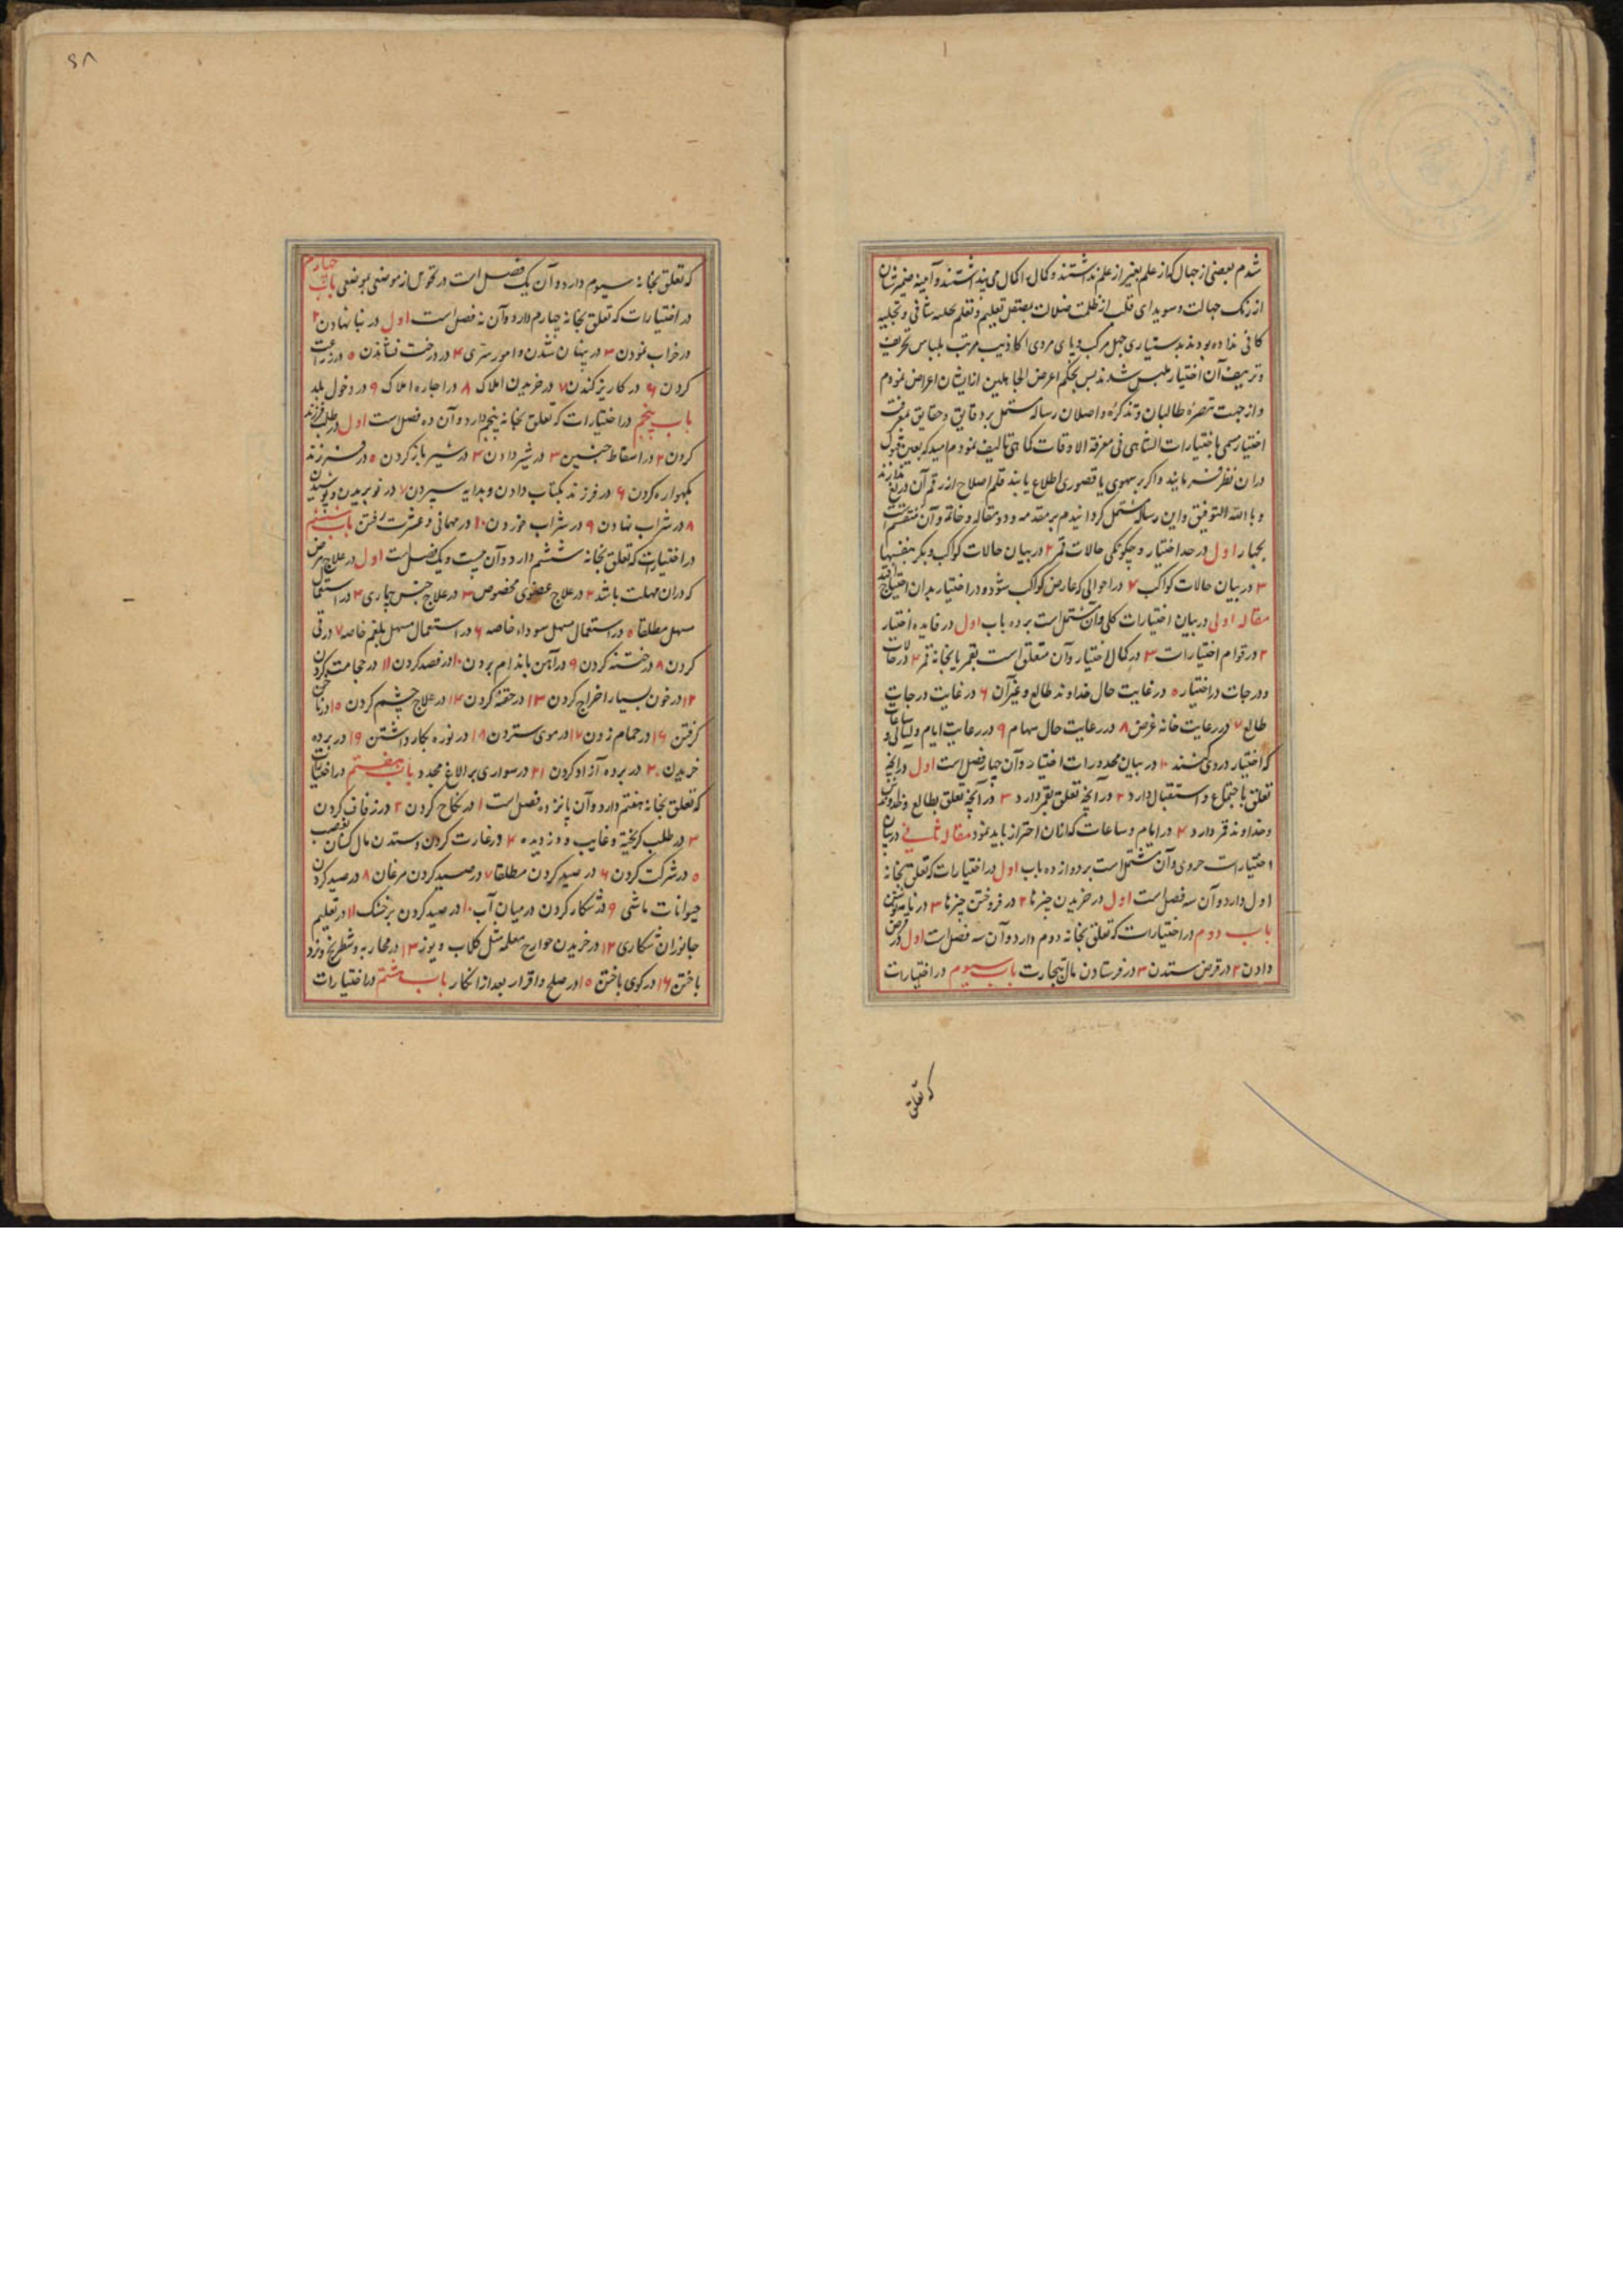 شدم بعضی از جهال که از علم بغیر از علم نداشتند و کمال اکمال می پنداشتند و آینه ضمیر شان
از زنک جهالت و سویدای قلب از ظلمت ضلالت بصیقل تعلیم و تعلم بحلیه شافی و تجلیه
کافی نداده بودند بدستیاری جهل مرکب و پای مردی اکاذیب مرتب بلباس تحریف
و تزییف آن اختیار ملبس شدند پس بحکم اعرض عن الجاهلین از ایشان اعراض نمودم
و از جهت تبصرهٔ طالبان و تذکرهٔ واصلان رساله مشتمل بر دقایق و حقایق معرفت
اختیار مسمی باختیارات الشاهی فی معرفة الاوقات کماهی تالیف نمودم امید که بعین قبول
دران نظر فرمایند و اکر بر سهوی یا قصوری اطلاع یابند قلم اصلاح از رقم آن دریغ ندارند
و بالله التوفیق و این رساله مشتمل کردانیدم بر مقدمه و دو مقاله و خاتمه و آن منقسم است
بچهار اول در حد اختیار و چکونکی حالات قمر ۲ در بیان حالات کواکب دیکر بنفسها
۳ در بیان حالات کواکب ۴ در احوالی که عارض کواکب شود و در اختیار بدان احتیاج افتد
مقاله اولی در بیان اختیارات کلی و آن مشتمل است بر ده باب اول در فایده اختیار
۲ در قوام اختیارات ۳ در کمال اختیار و آن متعلق است بقمر یا بخانهٔ قمر ۴ در حالات
و درجات در اختیار ۵ در غایت حال خداوند طالع و غیر آن ۶ در غایت درجات
طالع ۷ در رعایت خانه غرض ۸ در رعایت حال سهام ۹ در رعایت ایام و لیالی و ساعات
که اختیار در وی کنند ۱۰ در بیان محذورات اختیار و آن چهار فصل است اول در آنچه
تعلق باجتماع و استقبال دارد ۲ در آنچه تعلق بقمر دارد ۳ در آنچه تعلق بطالع و خداوندش
و خداوند قمر دارد ۴ در ایام و ساعات که از ان احتراز باید نمود مقاله ثانی در بیان
اختیارات جزوی و آن مشتمل است بر دوازده باب اول در اختیارات که تعلق بخانه
اول دارد و آن سه فصل است اول در خریدن چیزها ۲ در فروختن چیزها ۳ در نامه نوشتن
باب دوم در اختیارات که تعلق بخانه دوم دارد و آن سه فصل است اول در قرض
دادن ۲ در قرض ستدن ۳ در فرستادن مال بتجارت باب سیوم در اختیارات
که تعلق
۹۸
که تعلق بخانه سیوم دارد و آن یک فصل است در تحویل از موضعی بموضعی باب چهارم
در اختیارات که تعلق بخانه چهارم دارد و آن نه فصل است اول در بنا نهادن ۲
در خراب نمودن ۳ در پنهان شدن و امور سری ۴ در درخت نشاندن ۵ در زراعت
کردن ۶ در کاریز کندن ۷ در خریدن املاک ۸ در اجاره املاک ۹ در دخول بلد
باب پنجم در اختیارات که تعلق بخانه پنجم دارد و آن ده فصل است اول در طلب فرزند
کردن ۲ در اسقاط جنین ۳ در شیر دادن ۴ در شیر باز کردن ۵ در فرزند
بکهواره کردن ۶ در فرزند بکتاب دادن و بدایه سپردن ۷ در نو بریدن و پوشیدن
۸ در شراب نهادن ۹ در شراب خوردن ۱۰ در مهمانی و عشرت رفتن باب ششم
در اختیارات که تعلق بخانه ششم دارد و آن بیست و یک فصل است اول در علاج مرض
که دران مهلت باشد ۲ در علاج عضوی مخصوص ۳ در علاج جنس بیماری ۴ در استعمال
مسهل مطلقا ۵ در استعمال مسهل سوداء خاصه ۶ در استعمال مسهل بلغم خاصه ۷ در قی
کردن ۸ در ختنه کردن ۹ در آهن باندام بردن ۱۰ در فصد کردن ۱۱ در حجامت کردن
۱۲ در خون بسیار اخراج کردن ۱۳ در حقنه کردن ۱۴ در علاج چشم کردن ۱۵ در ناخن
کرفتن ۱۶ در حمام زدن ۱۷ در موی ستردن ۱۸ در نوره بکار داشتن ۱۹ در برده
خریدن ۲۰ در برده آزاد کردن ۲۱ در سواری بر الاغ مجدد باب هفتم در اختیارات
که تعلق بخانه هفتم دارد و آن پانزده فصل است ۱ در نکاح کردن ۲ در زفاف کردن
۳ در طلب کریخته و غایب و دزدیده ۴ در غارت کردن و ستدن مال کسان بغصب
۵ در شرکت کردن ۶ در صید کردن مطلقا ۷ در صید کردن مرغان ۸ در صید کردن
حیوانات ماشی ۹ در شکار کردن در میان آب ۱۰ در صید کردن بر خشک ۱۱ در تعلیم
جانوران شکاری ۱۲ در خریدن جوارح معلمه مثل کلاب و یوز ۱۳ در محاربه و شطرنج و نرد
باختن ۱۴ در کوی باختن ۱۵ در صلح و اقرار بعد از انکار باب هشتم در اختیارات